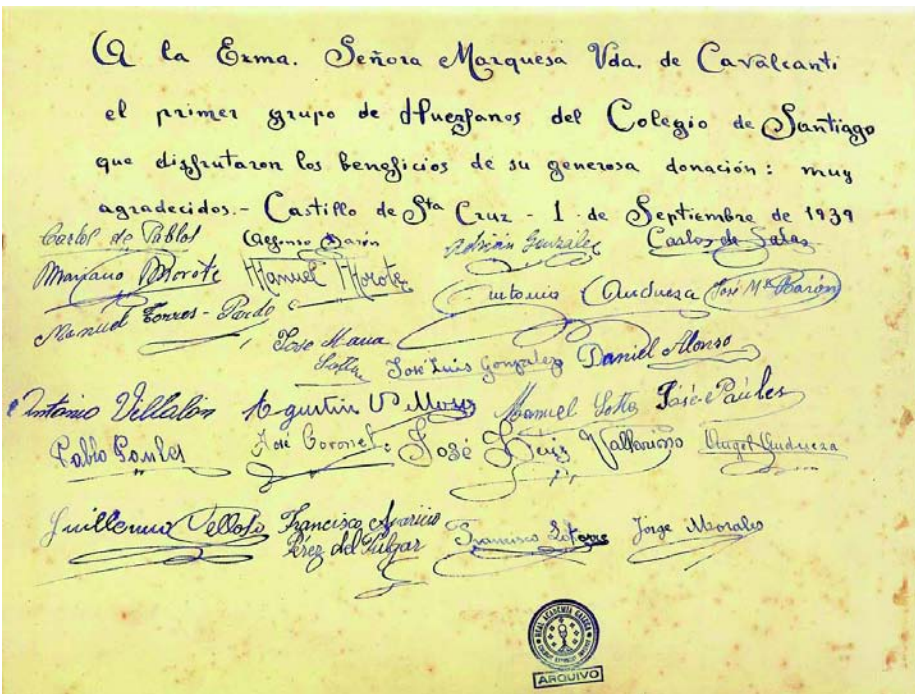 A la Exma. Señora Marquesa Vda. de Cavalcanti
el primer grupo de Huerfanos del Colegio de Santiago
que disfrutaron los beneficios de su generosa donación: muy
agradecidos.- Castillo de Sta Cruz - 1 - de Septiembre de 1939
Carlos de Pablos Alfonso Barón Adrián González Carlos de Salas
Mariano Morote Manuel Morote Antonio Andueza José Mª Barón
Manuel Torres - Pardo
Jose Maria José Luis Gonzalez Daniel Alonso
Antonio Villalón Agustin Manuel Sotto José Paúles
Pablo Paules José Coronel José Luis Vallarino Angel Andueza
Guillermo Velloso Francisco Aparicio Francisco Jorge Morales
Pérez del Pulgar
REAL ACADEMIA GALEGA
ARQUIVO